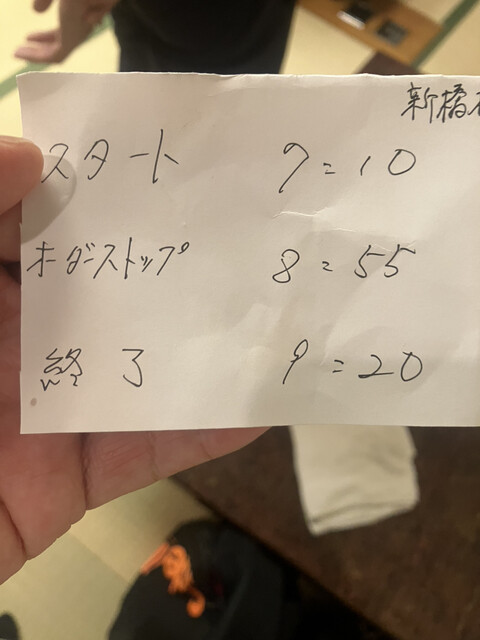 新橋
スタート 7:10
オーダーストップ 8:55
終了 9:20